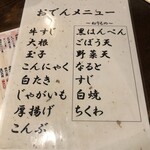 おでんメニュー
牛すじ
大根
玉子
こんにゃく
白たき
じゃがいも
厚揚げ
こんぶ
黒はんぺん
ごぼう天
野菜天
なると
すじ
白焼
ちくわ